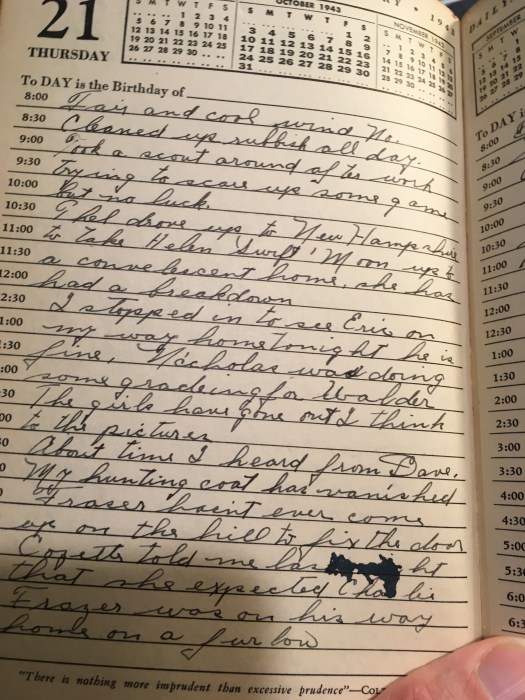 21
THURSDAY
OCTOBER 1943
S M T W T F S
1 2
3 4 5 6 7 8 9
10 11 12 13 14 15 16
17 18 19 20 21 22 23
24 25 26 27 28 29 30
31
NOVEMBER 1943
To DAY is the Birthday of
8:00 Fair and cool wind No.
8:30 Cleaned up rubbish all day.
9:00 Took a scout around after work
9:30 trying to scare up some game
10:00 but no luck
10:30 Thel drove up to New Hampshire
11:00 to take Helen Swift Moon up to
11:30 a convelescent home, she has
12:00 had a breakdown
2:30 I stopped in to see Eric on
1:00 my way home tonight he is
:30 fine, Nicholas was doing
:00 some gradeing for Walder
:30 The girls have gone out I think
00 to the pictures
30 About time I heard from Dave.
00 My hunting coat has vanished
Frazer haint ever come
up on the hill to fix the door
Cozette told me ht
that she expected Charlie
Frazer was on his way
home on a furlow
"There is nothing more imprudent than excessive prudence"—COL
DAILY
SEPTEMBER
To DAY i
8:00
8:30
9:00
9:30
10:00
10:30
11:00
11:30
12:00
12:30
1:00
1:30
2:00
2:30
3:00
3:30
4:00
4:30
5:00
5:3
6:0
6:3